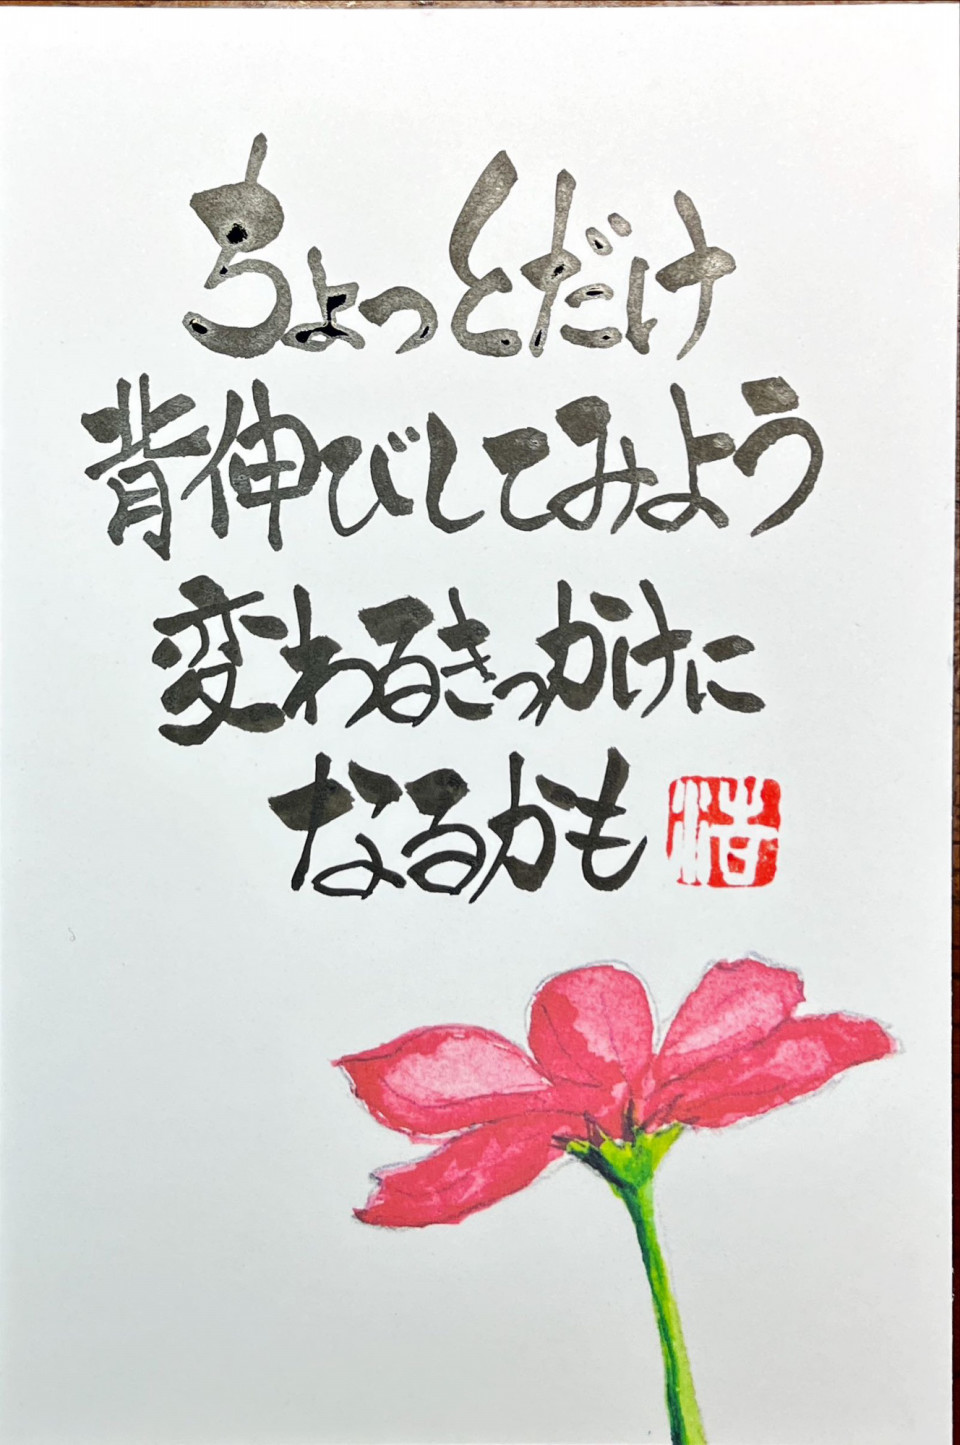 ちょっとだけ
背伸びしてみよう
変わるきっかけに
なるかも